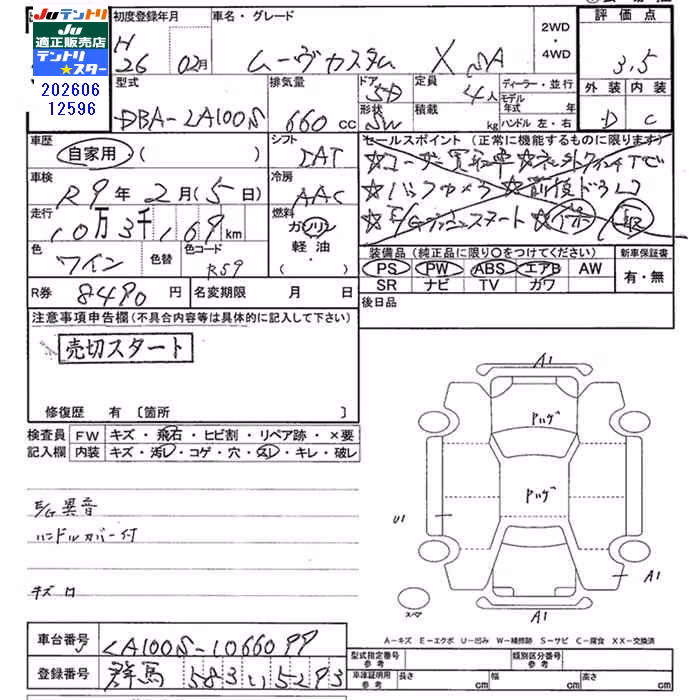 JUテントリ
JU
適正販売店
テントリ
★スター
202606
12596
初度登録年月
H
26 02月
車名・グレード
ムーヴカスタム X SA
2WD
・
4WD
評価点
3.5
外装 内装
D C
型式
DBA-LA100S
排気量
660 cc
ドア
5D
形状
SW
定員
4人
積載
kg
ディーラー・並行
モデル
年式 年
ハンドル 左・右
車歴
自家用・( )
シフト
IAT
セールスポイント(正常に機能するものに限ります)
車検
R9年2月(5日)
冷房
AAC
走行
10万3千169km
燃料
ガソリン
軽油・
( )
色
ワイン
色替
色コード
R59
装備品(純正品に限り○をつけてください)
PS PW ABS エアB AW
SR ナビ TV ガワ
新車保証書
有・無
R券 8490円
名変期限 月 日
後日品
注意事項申告欄(不具合内容等は具体的に記入して下さい)
売切スタート
修復歴 有 〔箇所 〕
検査員
記入欄
FW キズ・飛石・ヒビ割・リペア跡・×要
内装 キズ・汚レ・コゲ・穴・スレ・キレ・破レ
E/G異音
ハンドルカバー付
キズ
A1
Pハゲ
Pハゲ
U1
A1
スペア
A1
A-キズ E-エクボ U-凹み W-補修跡 S-サビ C-腐食 XX-交換済
車台番号 LA100S-1066099
登録番号 群馬 583 い 5293
型式指定番号
参考
類別区分番号
参考
車庫証明用
参考
長さ cm
幅 cm
高さ cm